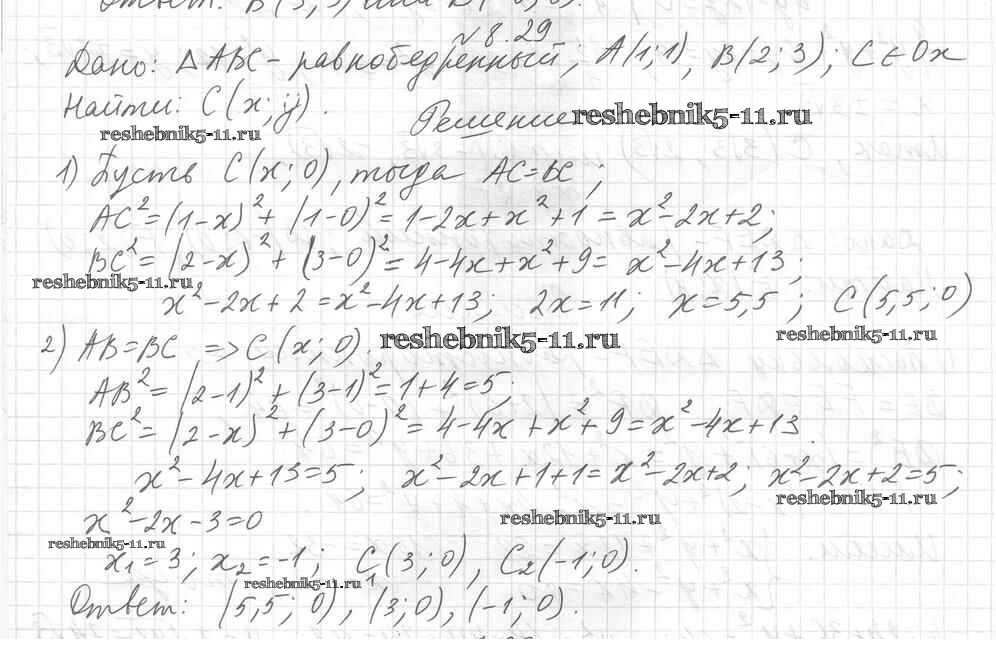 Ответ: В(5;5) или
№8.29
Дано: △ABC - равнобедренный; A(1;1), B(2;3); C∈Ox
Найти: C(x;y).
reshebnik5-11.ru
Решение
reshebnik5-11.ru
1) Пусть C(x;0), тогда AC=BC;
AC²=(1-x)²+(1-0)²=1-2x+x²+1=x²-2x+2;
BC²=(2-x)²+(3-0)²=4-4x+x²+9=x²-4x+13;
reshebnik5-11.ru
x²-2x+2=x²-4x+13; 2x=11; x=5,5; C(5,5;0)
reshebnik5-11.ru
2) AB=BC ⇒ C(x;0).
reshebnik5-11.ru
AB²=(2-1)²+(3-1)²=1+4=5;
BC²=(2-x)²+(3-0)²=4-4x+x²+9=x²-4x+13.
x²-4x+13=5; x²-2x+1+1=x²-2x+2; x²-2x+2=5;
reshebnik5-11.ru
x²-2x-3=0
reshebnik5-11.ru
reshebnik5-11.ru
x₁=3; x₂=-1; C₁(3;0), C₂(-1;0).
reshebnik5-11.ru
Ответ: (5,5;0), (3;0), (-1;0).